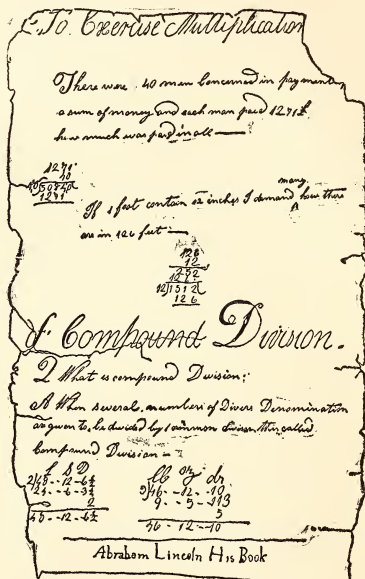 To Exercise Multiplication
There were 40 men Concerned in payment
a sum of money and each man paid 1271£
how much was paid in all —
1271
40
40)50840(
1271
many
If 1 foot contain 12 inches I demand how there
are in 126 feet —
126
12
252
12)1512(
126
of Compound Division.
Q What is compound Division;
A When several numbers of Divers Denomination
are given to be divided by 1 common divisor this called
Compound Division —
£ S D
lb oz dr
2)48--12-6½
5)46--12--10
24--6-3¼
9--5--113
2
5
48--12-6½
46--12--10
Abraham Lincoln His Book